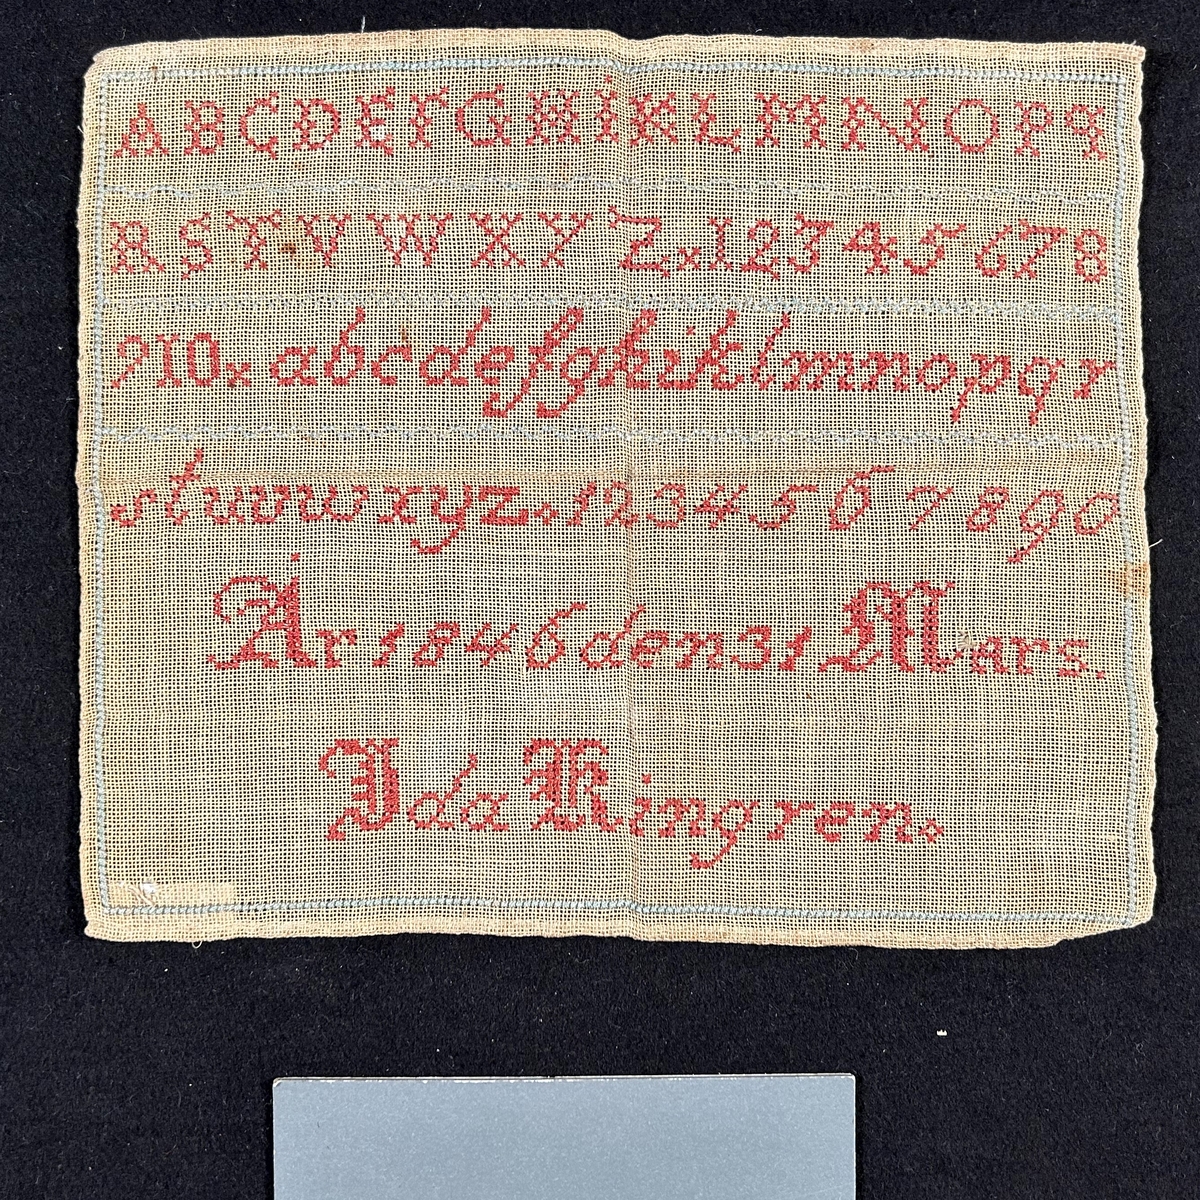 A B C D E F G H I K L M N O P Q
R S T V W X Y Z x 1 2 3 4 5 6 7 8
9 10 x a b c d e f g h i k l m n o p q r
s t u v w x y z 1 2 3 4 5 6 7 8 9 0
År 1846 den 31 Mars.
Ida Kingren